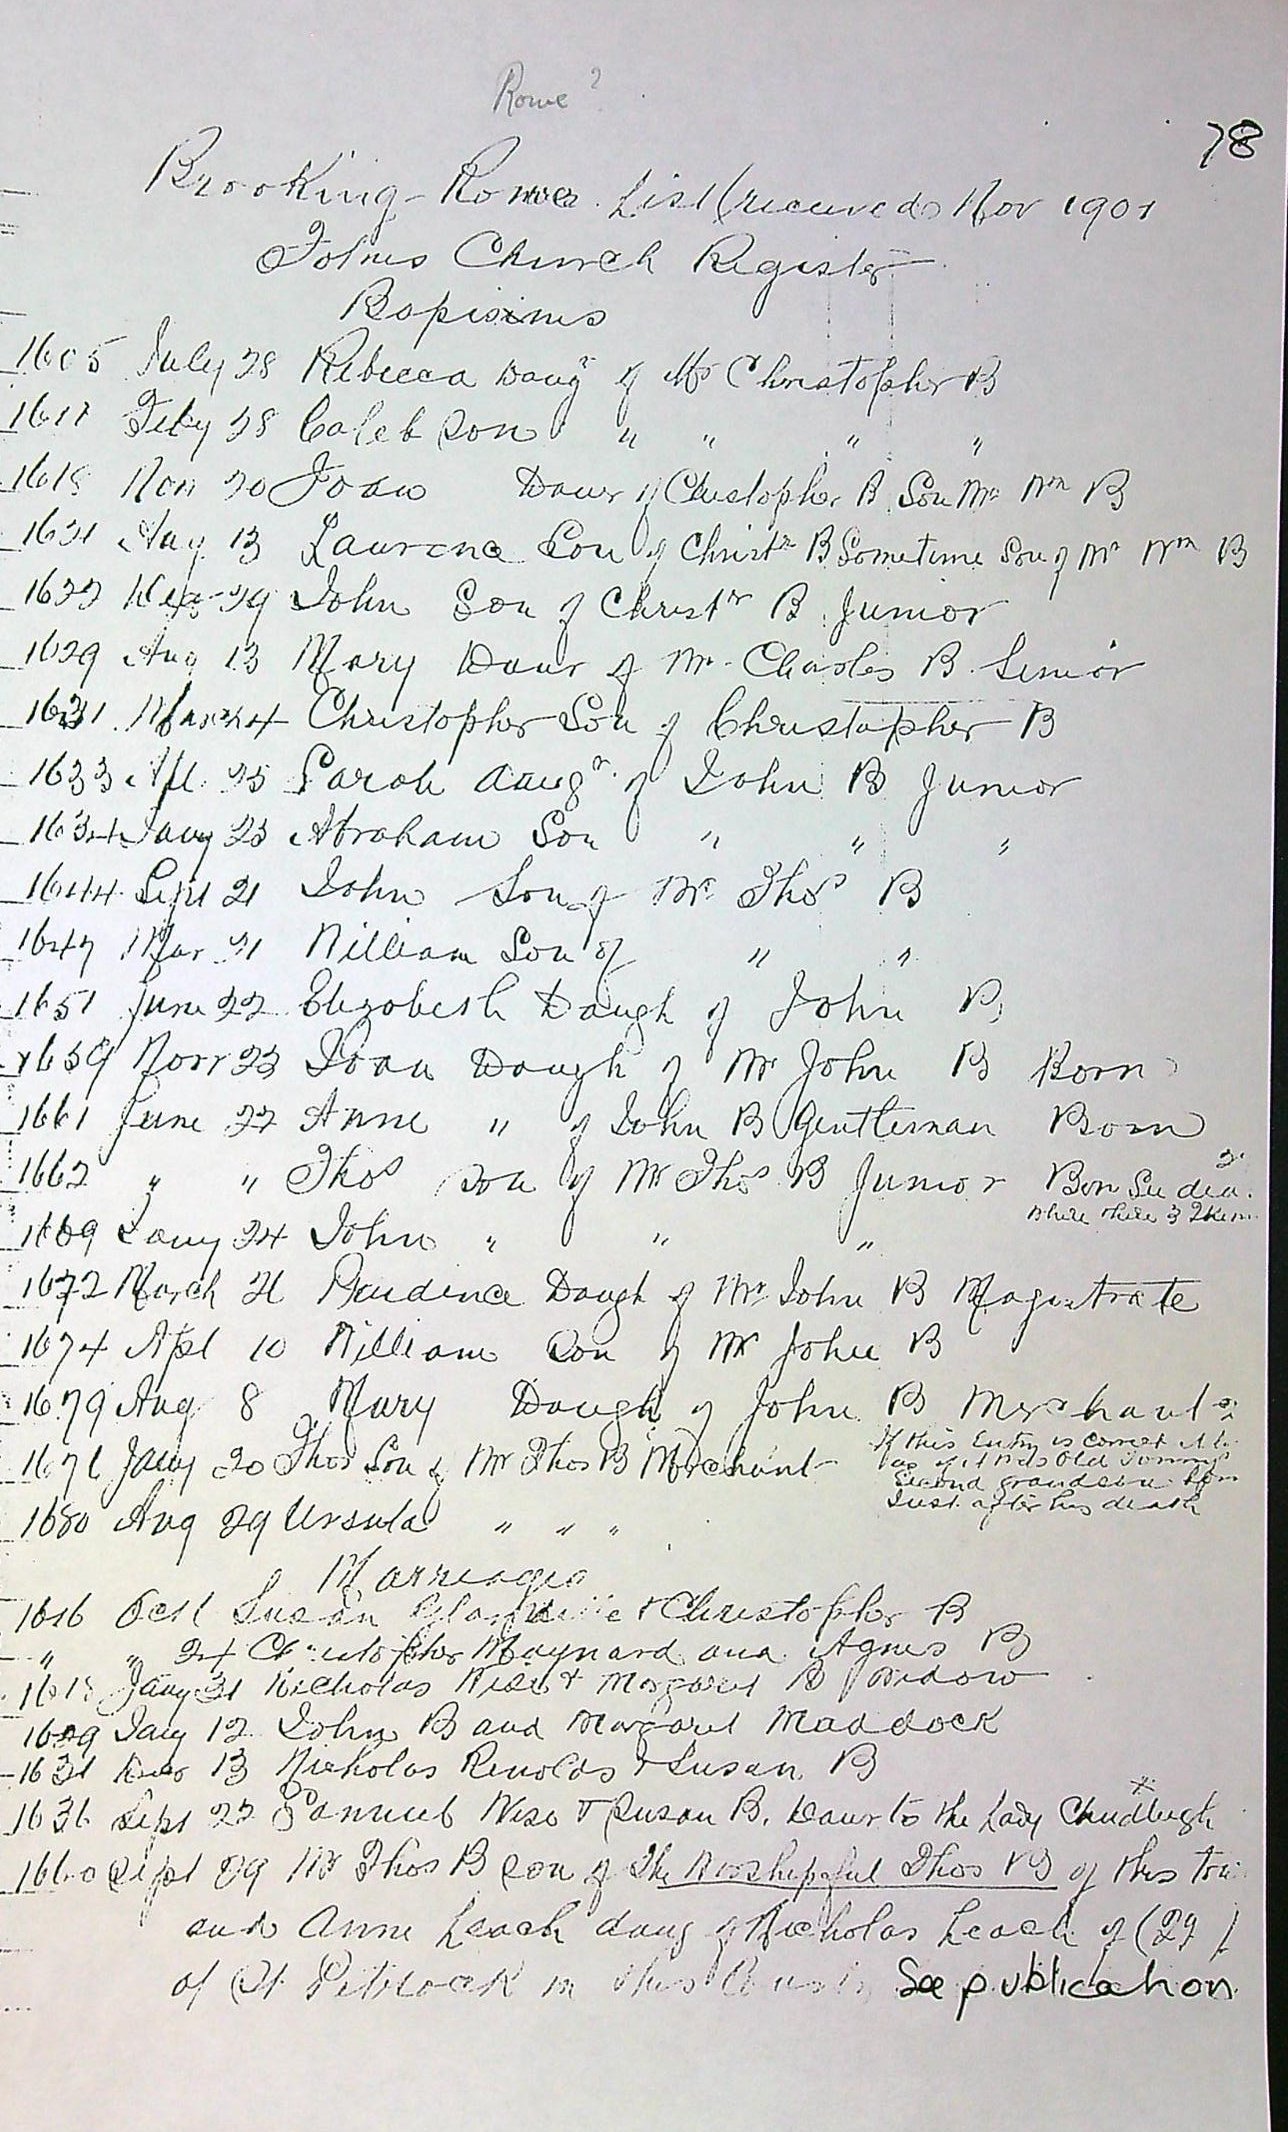 Rowe ?
78
Brooking-Rowes List (received Nov 1901
Totnes Church Register
Baptisims
1605 July 28 Rebecca Daugr of Mr Christopher B
1611 Feby 28 Caleb Son " " " "
1618 Nov 20 Joan Daur of Christopher B Son Mr Wm B
1621 Aug 13 Laurence Son of Christr B Sometime Son of Mr Wm B
1622 Dec 29 John Son of Christr B Junior
1629 Aug 13 Mary Daur of Mr Charles B Senior
1631 Mar 24 Christopher Son of Christopher B
1633 Apl 25 Sarah daugr of John B Junior
1634 Jany 23 Abraham Son " " "
1644 Sept 21 John Son of Mr Thos B
1647 Mar 21 William Son of " "
1651 June 22 Elizabeth Daugh of John B
1659 Novr 23 Joan Daugh of Mr John B Born
1661 June 22 Anne " of John B Gentleman Born
1662 " " Thos Son of Mr Thos B Junior Born
1669 Jany 24 John " " "
1672 March 21 Prudence Daugh of Mr John B Magistrate
1674 Apl 10 William Son of Mr John B
1679 Aug 8 Mary Daugh of John B Merchant
If this Entry is correct
1671 Jany 20 Thos Son of Mr Thos B Merchant
Old Tommy's
Second grandson born
Just after his death
1680 Aug 29 Ursula " " "
Marriages
1616 Oct 1 Susan & Christopher B
" " 24 Christopher Maynard and Agnes B
1618 Jany 31 Nicholas Wise & Margaret B Widow
1629 Jany 12 John B and Margaret Maddock
1631 Dec 13 Nicholas Renolds & Susan B
1636 Sept 22 Samuel Wise & Susan B. Daur to the Lady Chudleigh *
1660 Sept 09 Mr Thos B son of The Worshipful Thos B of this
and Anne Leach daug of Nicholas Leach of (29
of St Petrock in this See publication